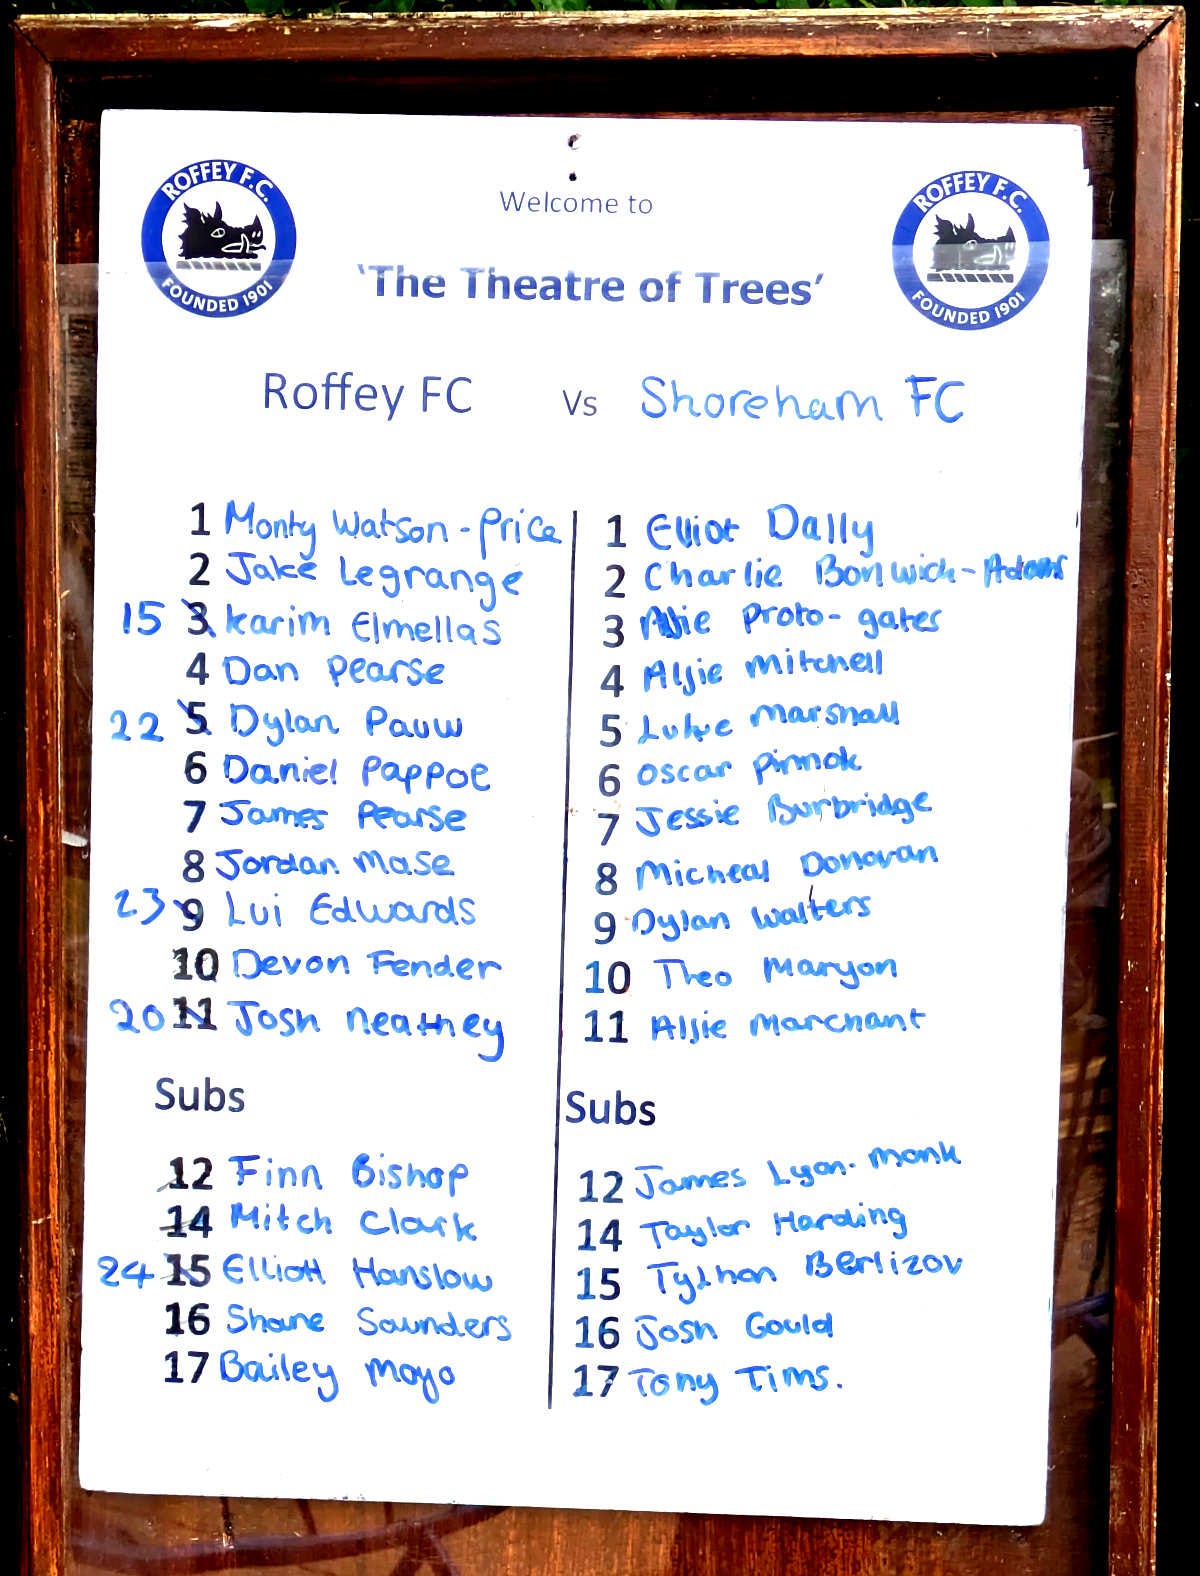 ROFFEY F.C.
FOUNDED 1901
ROFFEY F.C.
FOUNDED 1901
Welcome to
'The Theatre of Trees'
Roffey FC Vs Shoreham FC
1 Monty Watson-Price
2 Jake Legrange
15 3 Karim Elmellas
4 Dan Pearse
22 5 Dylan Pauw
6 Daniel Pappoe
7 James Pearse
8 Jordan Mase
23 9 Lui Edwards
10 Devon Fender
20 11 Josh Neathey
Subs
12 Finn Bishop
14 Mitch Clark
24 15 Elliott Hanslow
16 Shane Saunders
17 Bailey Moyo
1 Elliot Dally
2 Charlie Bonwick-Adams
3 Alfie Proto-gates
4 Alfie Mitchell
5 Luke Marshall
6 Oscar Pinnok
7 Jessie Burbridge
8 Micheal Donovan
9 Dylan Walters
10 Theo Maryon
11 Alfie Marchant
Subs
12 James Lyon-Monk
14 Taylor Harding
15 Berlizov
16 Josh Gould
17 Tony Tims.